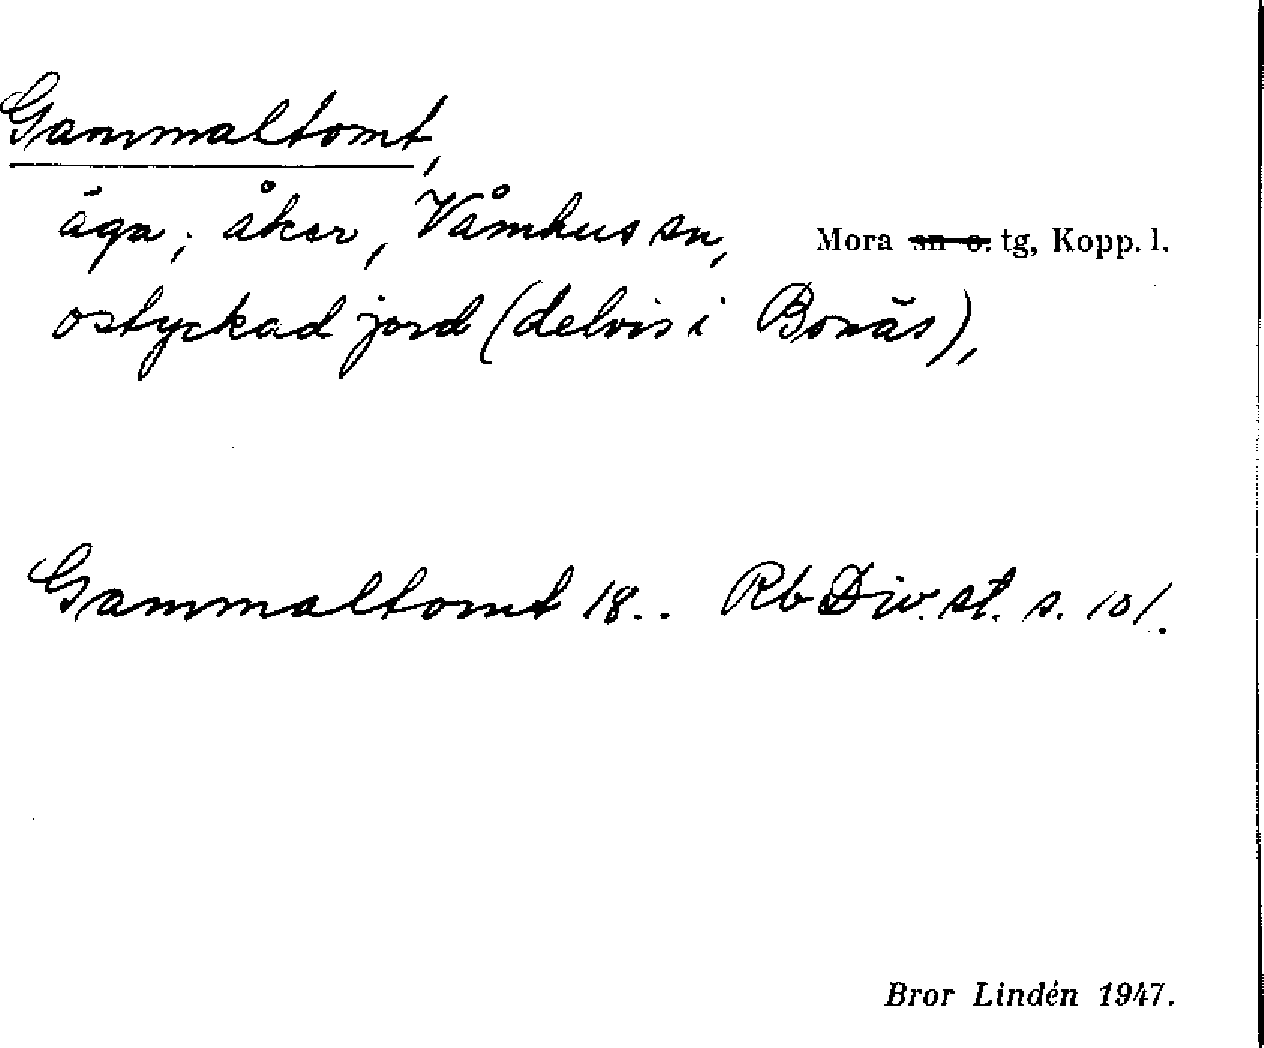 Gammaltomt,
äga; åker, Våmhus sn, Mora sn o. tg, Kopp. l.
ostyckad jord (delvis i Bonäs),
Gammaltomt 18.. Rb Div. st. s. 101.
Bror Lindén 1947.